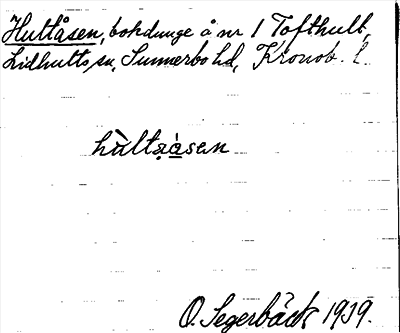 Hultåsen, bokdunge å nr 1 Tofthult,
Lidhults sn, Sunnerbo hd, Kronob. l.
hùltạà̱sen
O. Segerbäck 1919.